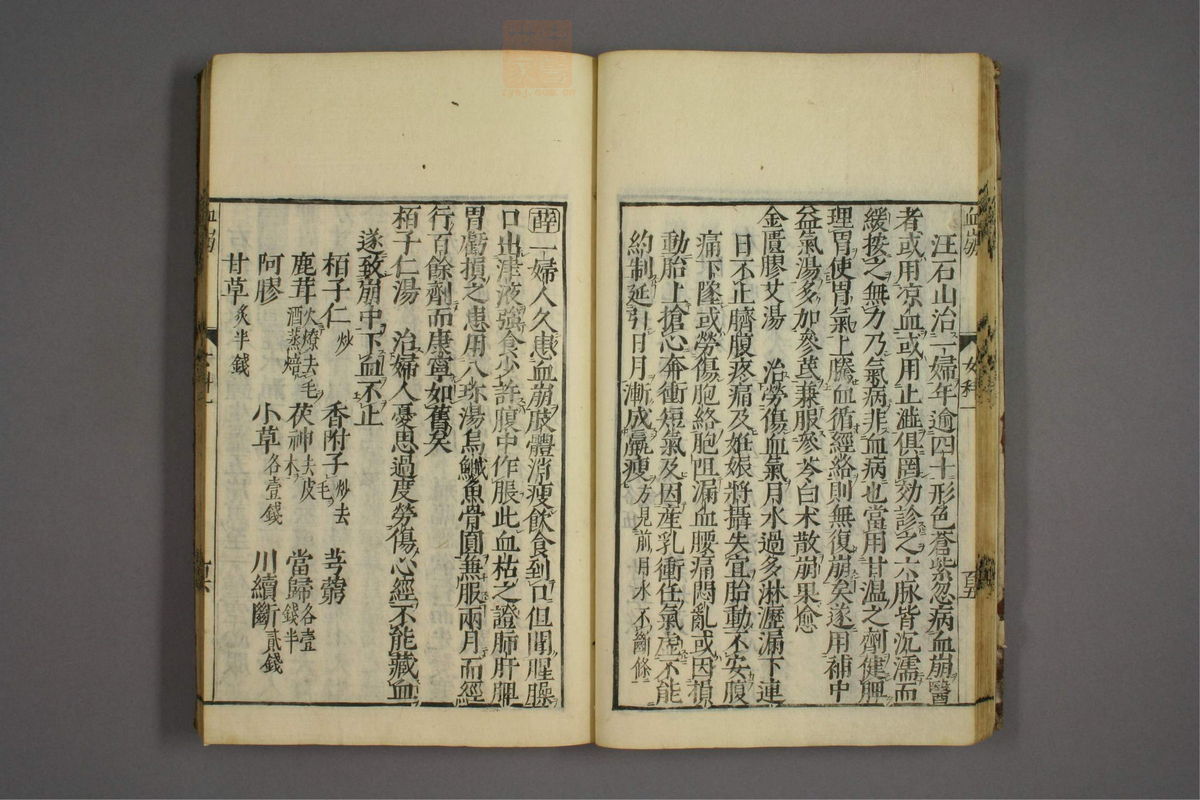 血崩
女科一
百五
汪石山治一婦年逾四十形色蒼紫忽病血崩醫
者或用凉血或用止澁俱罔効診之六脉皆沉濡而
緩按之無力乃氣病非血病也當用甘温之劑健脾
理胃使胃氣上騰血循經絡則無復崩矣遂用補中
益氣湯多加參芪兼服參苓白术散崩果愈
金匱膠艾湯　治勞傷血氣月水過多淋瀝漏下連
日不止臍腹疼痛及姙娠將攝失宜胎動不安腹
痛下墜或勞傷胞絡胞阻漏血腰痛悶亂或因損
動胎上搶心奔衝短氣及因産乳衝任氣虛不能
約制延引日月漸成羸瘦方見前月水不斷條
薛一婦人久患血崩肢體消瘦飲食到口但聞腥臊
口出津液強食少許腹中作脹此血枯之證肺肝脾
胃虧損之患用八珍湯烏鰂魚骨圓兼服兩月而經
行百餘劑而康寧如舊矣
栢子仁湯　治婦人憂思過度勞傷心經不能藏血
遂致崩中下血不止
栢子仁炒　香附子炒去毛　芎藭
鹿茸火燎去毛酒蒸焙　茯神去皮木　當歸各壹錢半
阿膠　小草各壹錢　川續斷貳錢
甘草炙半錢
血崩